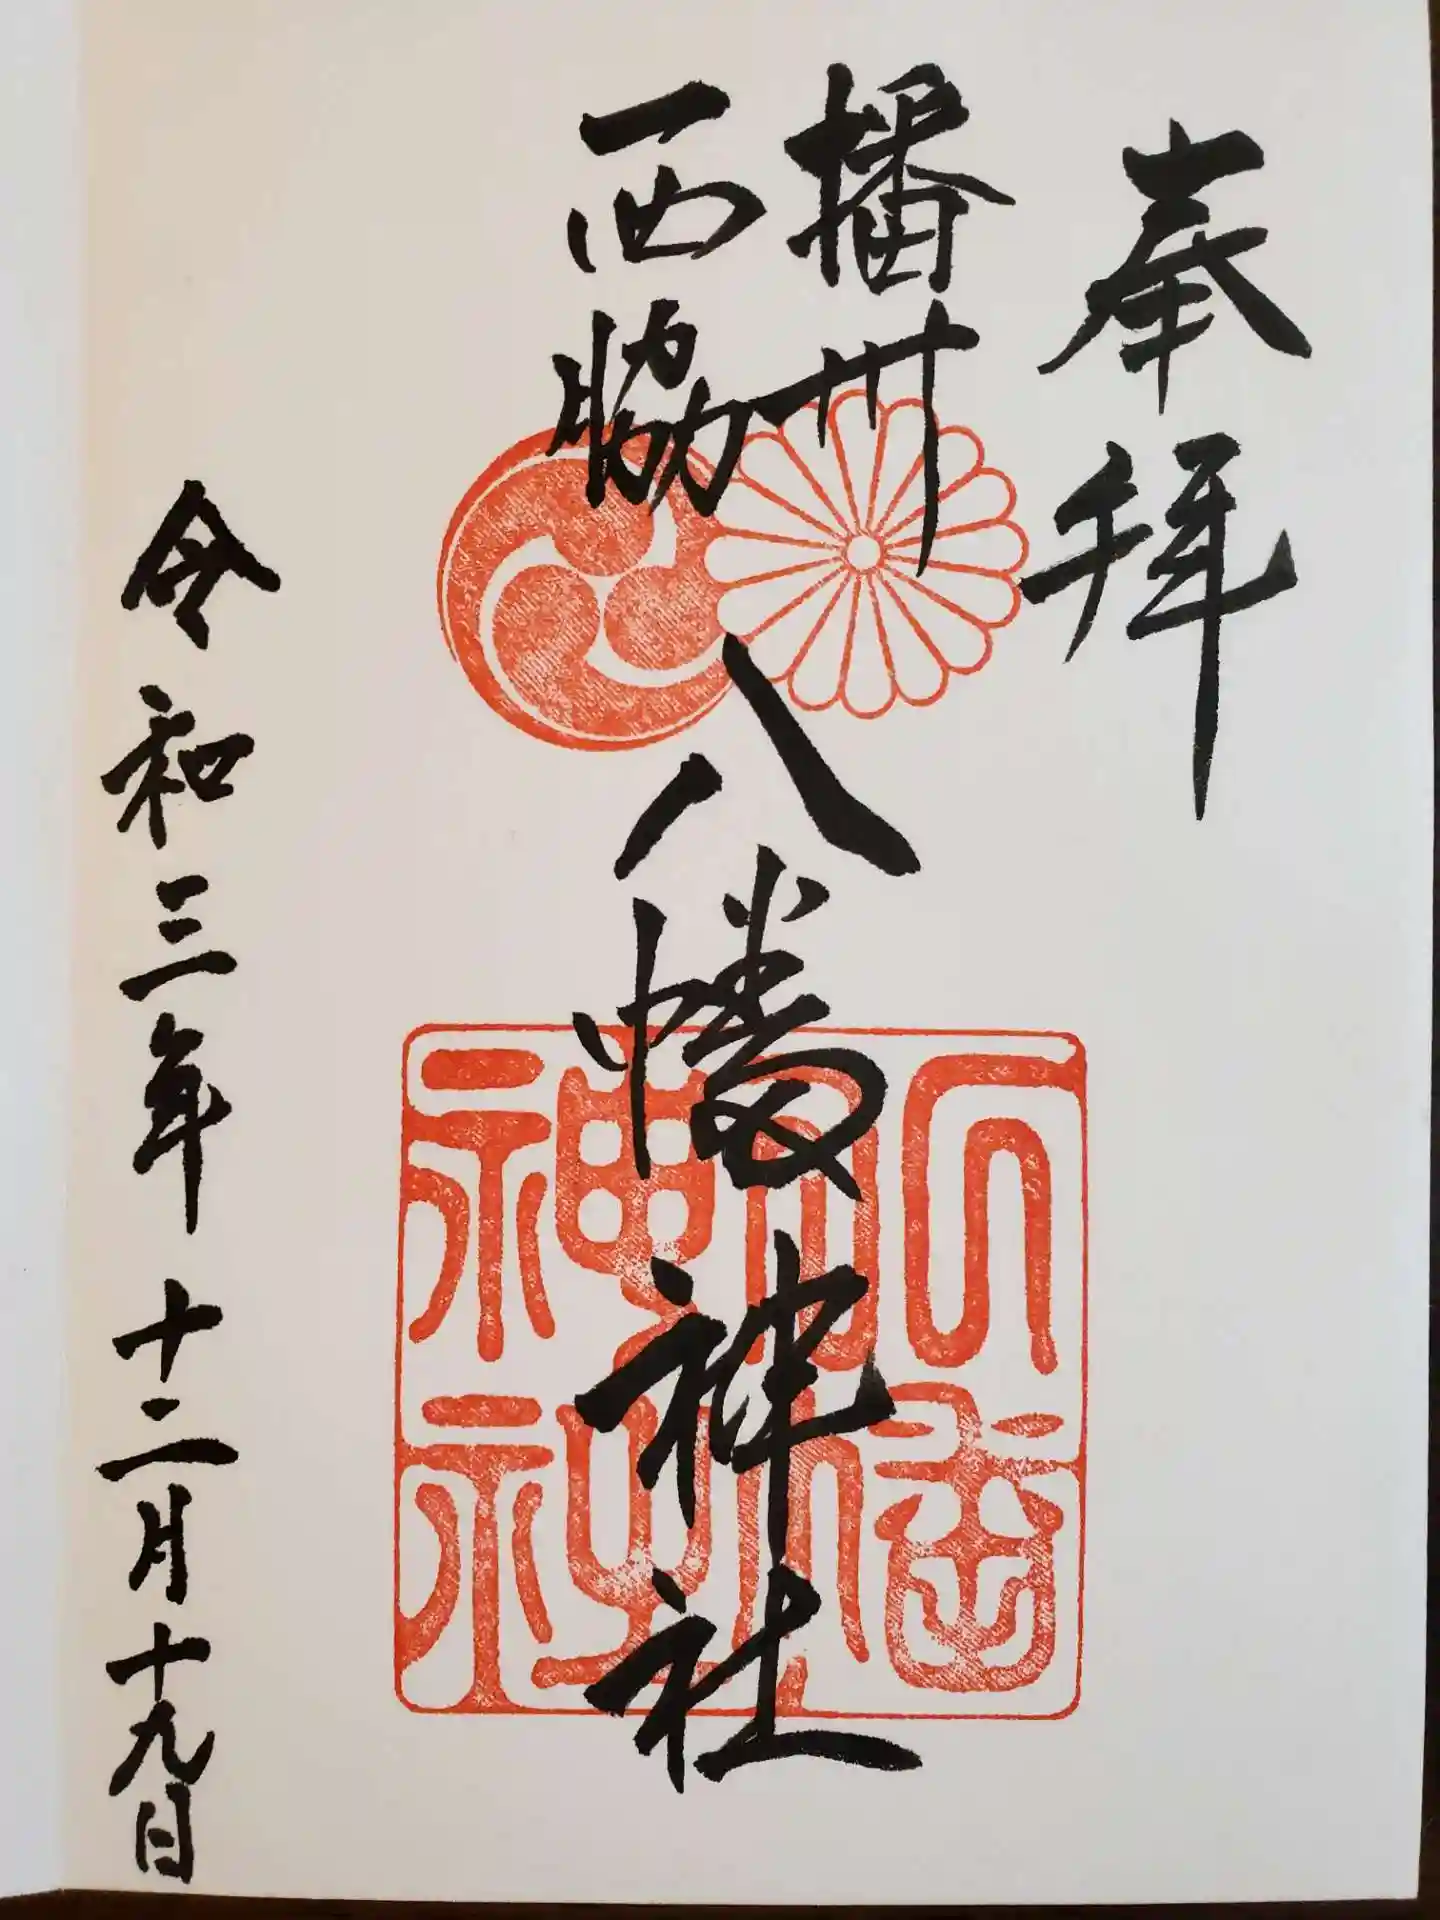 奉拝
播州
西脇
八幡神社
令和三年十二月十九日
八幡
神社